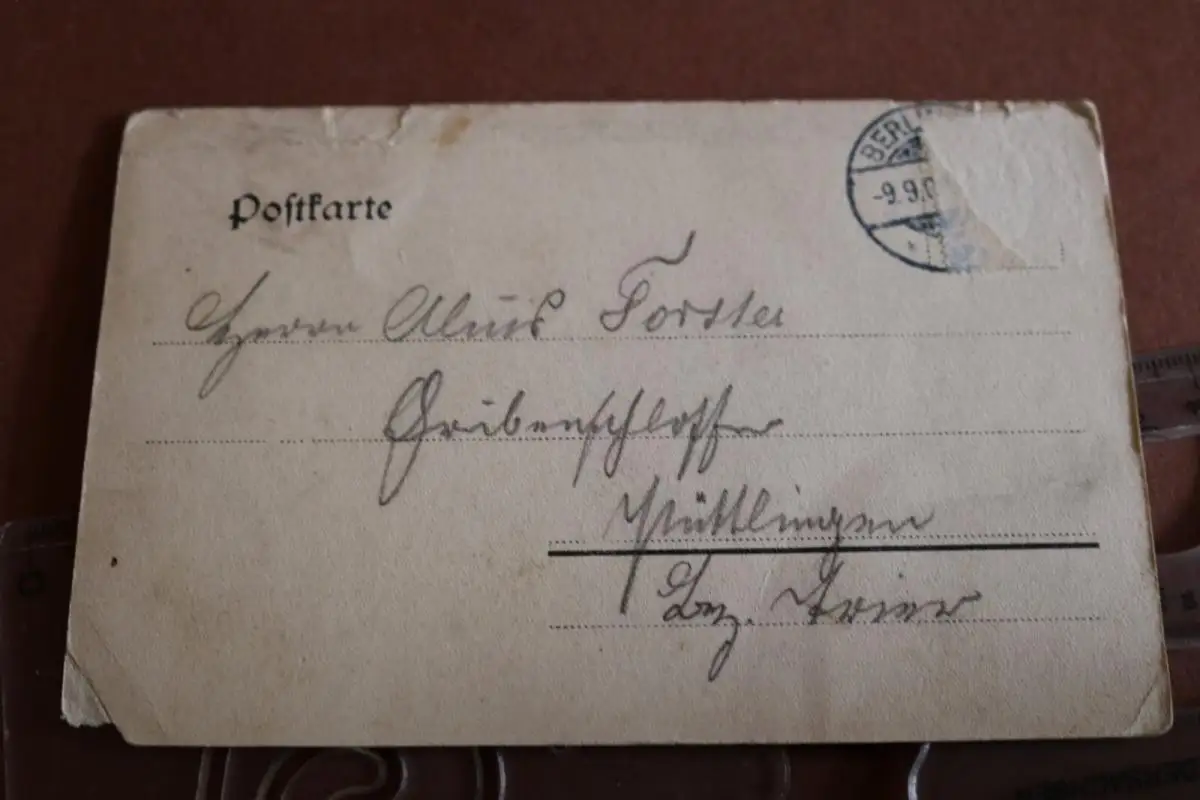 Postkarte
BERL
-9.9.0
Herrn Alois Forster
Grubenschlosser
Püttlingen
Bez. Trier